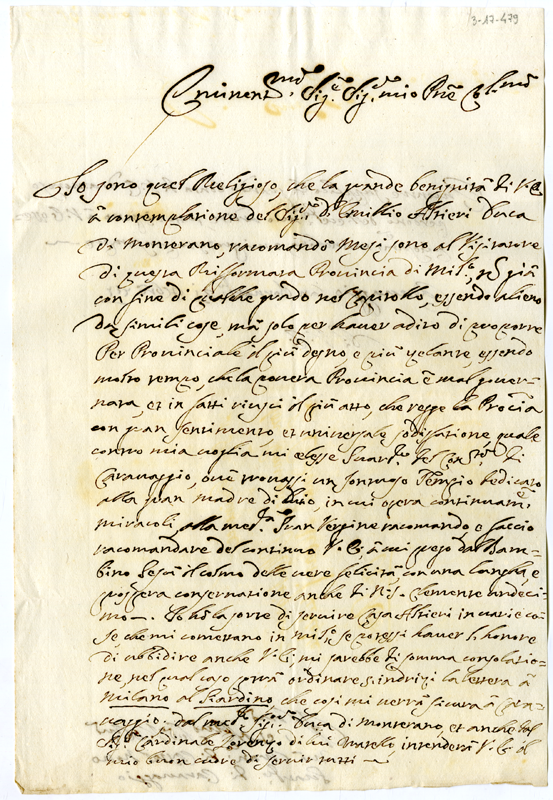 3-17-479
Eminent.mo Sig.re Sig.re mio P̃ne Col.mo
Io sono quel Religioso, che la grande benignità di V.E.
à contemplatione del Sig.r D. Emilio Altieri Duca
di Monterano, racomandò Mesi sono al Visitatore
di questa Rifformata Provincia di Mil.o, nõ già
con fine di qualche grado nel Capitolo, essendo alieno
da simili cose, mà solo per haver adito di proporre
Per Provinciale il più degno, e più zelante, essendo
molto tempo, che la povera Provincia è mal gover-
nata, et in fatti riuscì il più atto, che regge la Prõcia
con gran sentimento, et universale sodisfatione quale
contro mia voglia mi elesse Guard.no del Con.to di
Caravaggio, ove trovassi un sontuoso Tempio dedicato
alla gran Madre di Dio, in cui opera continuam.te
miracoli, alla med.ma Gran Vergine racomando, e faccio
racomandare del continuo V.E., à cui prego dal Bam-
bino Gesù il colmo delle vere felicità, con una longa, e
prospera conservatione anche di N.S. Clemente undeci-
mo. Io hò la sorte di servire Casa Altieri in varie co-
se che mi comettano in Mil.o, se potessi haver l'honore
di ubbidire anche V.E., mi sarebbe di somma consolatio-
ne nel qual caso potrà ordinare s'indrizi la lettera à
Milano al Giardino, che così mi verrà sicura à Cara-
vaggio. dal med.mo Sig.r Duca di Monterano, et anche dal
Sig.r Cardinale Lorenzo di lui fratello, intenderà V.E. il
mio buon cuore di servir tutti